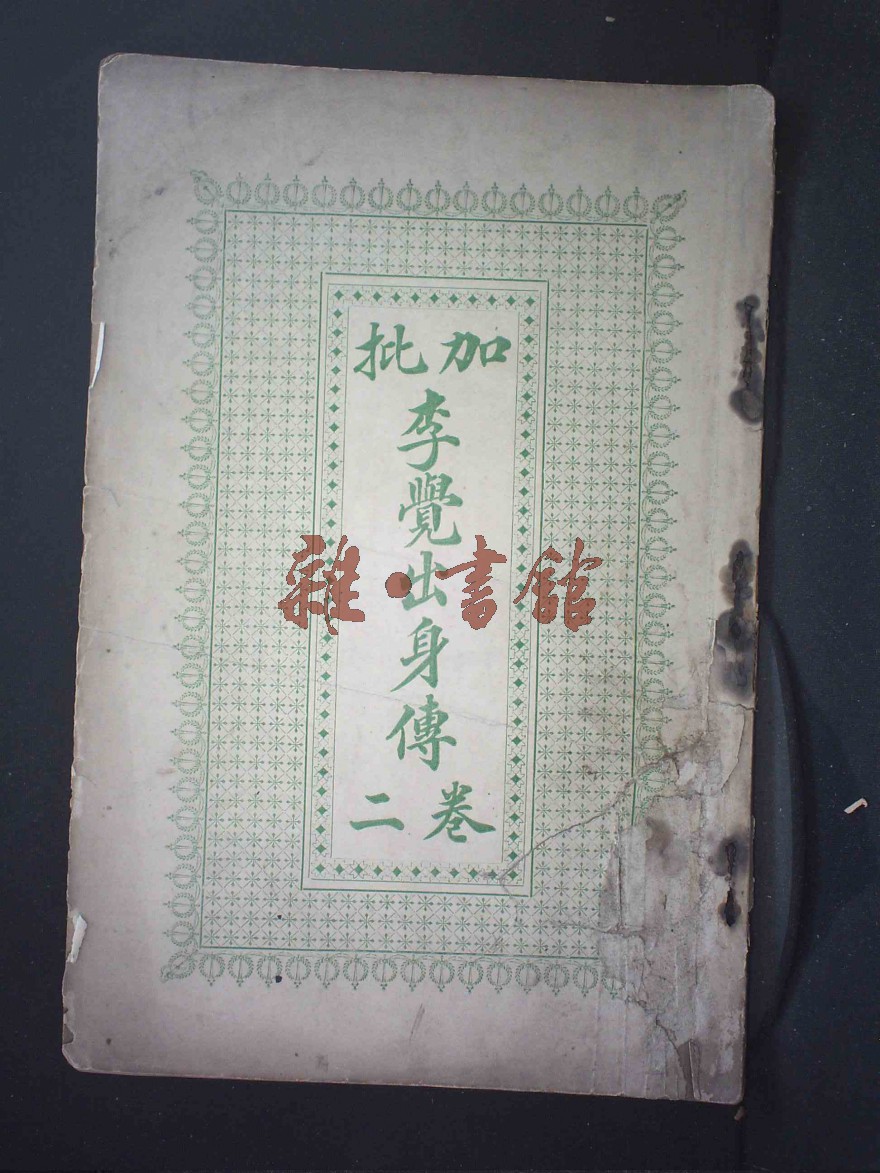 加批
李覺出身傳
卷二
雜·書館